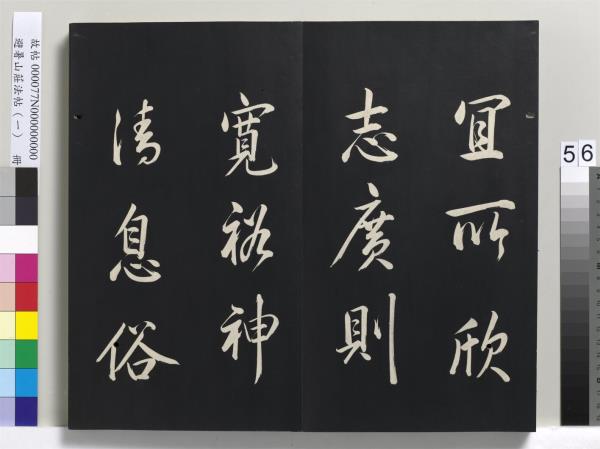 宜所欣
志廣則
寬裕神
清息俗
故帖 000077N000000000
避暑山莊法帖（一） 冊
56